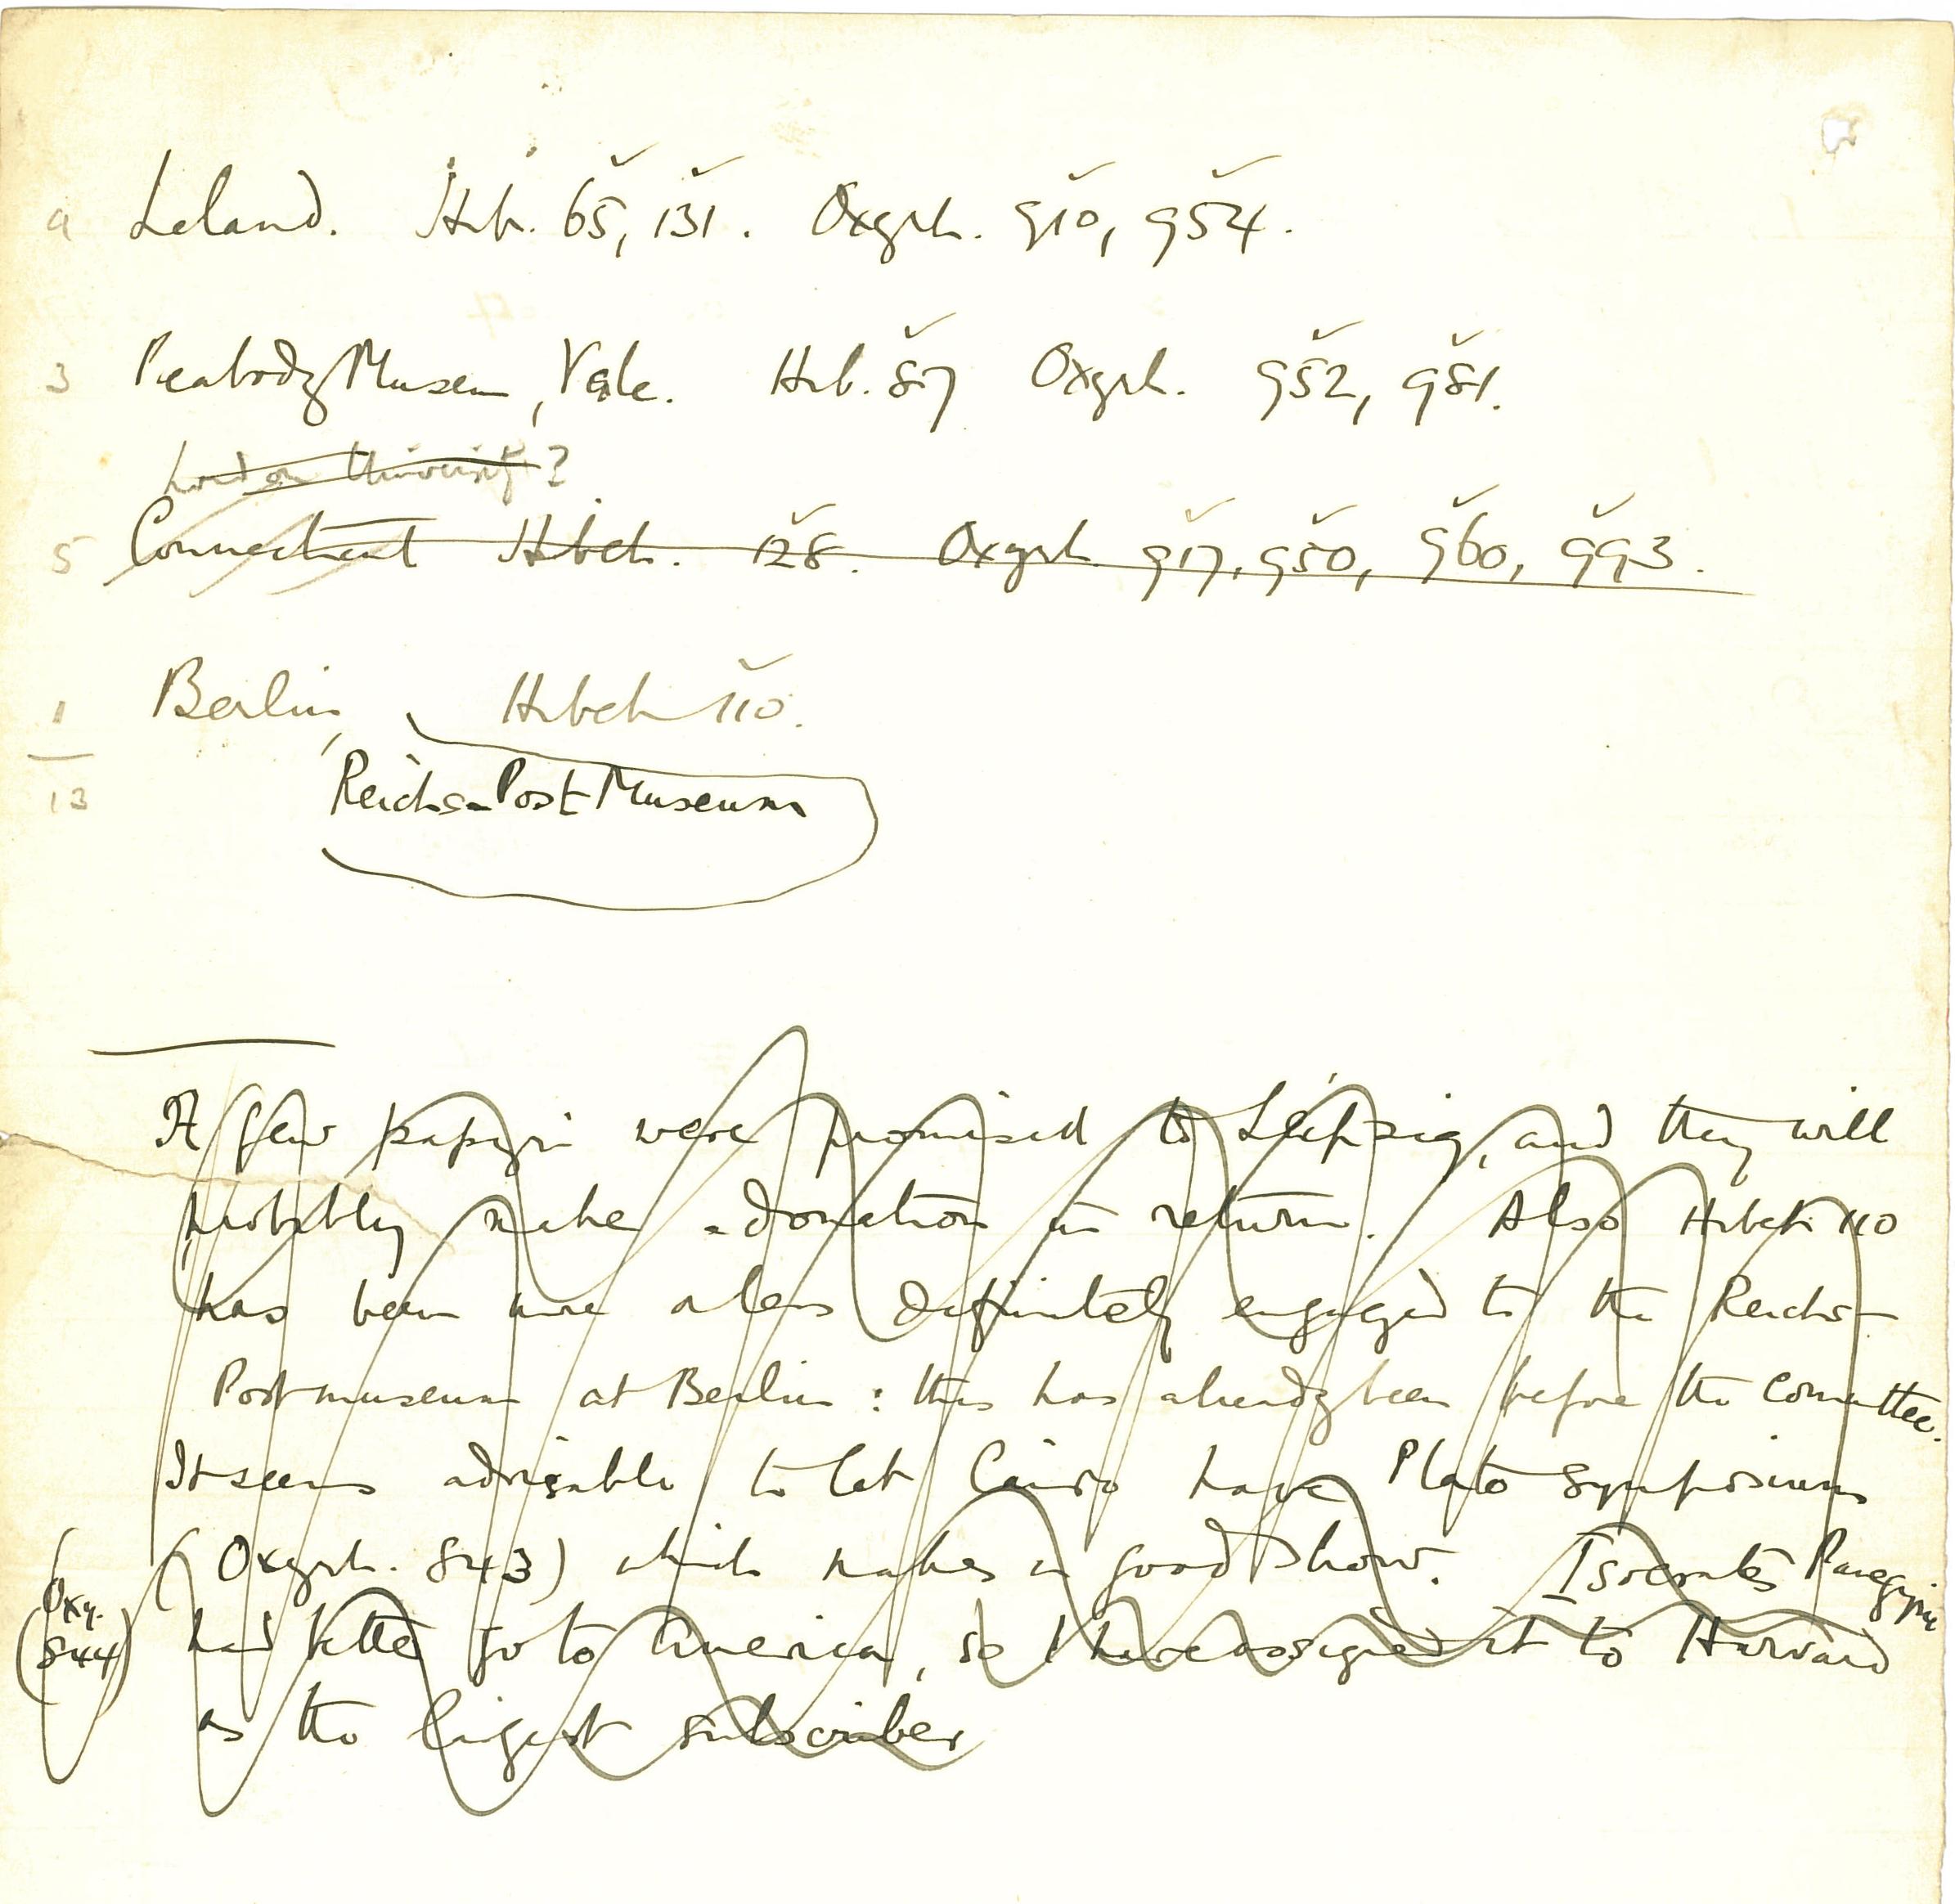 Leland. Hib. 65, 131. Oxyrh. 910, 954.
3 Peabody Museum, Yale. Hib. 87 Oxyrh. 952, 981.
London University?
5 Connecticut Hibeh. 128. Oxyrh. 917, 950, 960, 993.
1 Berlin, Hibeh 110.
13
Reichs-Post Museum
A few papyri were promised to Leipzig, and they will
probably make a donation in return. Also Hibeh 110
has been more or less definitely engaged to the Reichs-
Postmuseum at Berlin: this has already been before the Committee.
It seems advisable to let Cairo have Plato Symposium
(Oxyrh. 843) which makes a good show. Isocrates Panegyric
(Oxy. 844) had better go to America, so I have assigned it to Harvard
as the largest subscriber